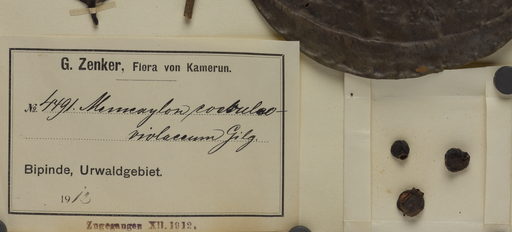 G. Zenker, Flora von Kamerun.
No 4491. Memecylon coeruleo-
violaceum Gilg.
Bipinde, Urwaldgebiet.
1912
Zugegangen XII. 1912.